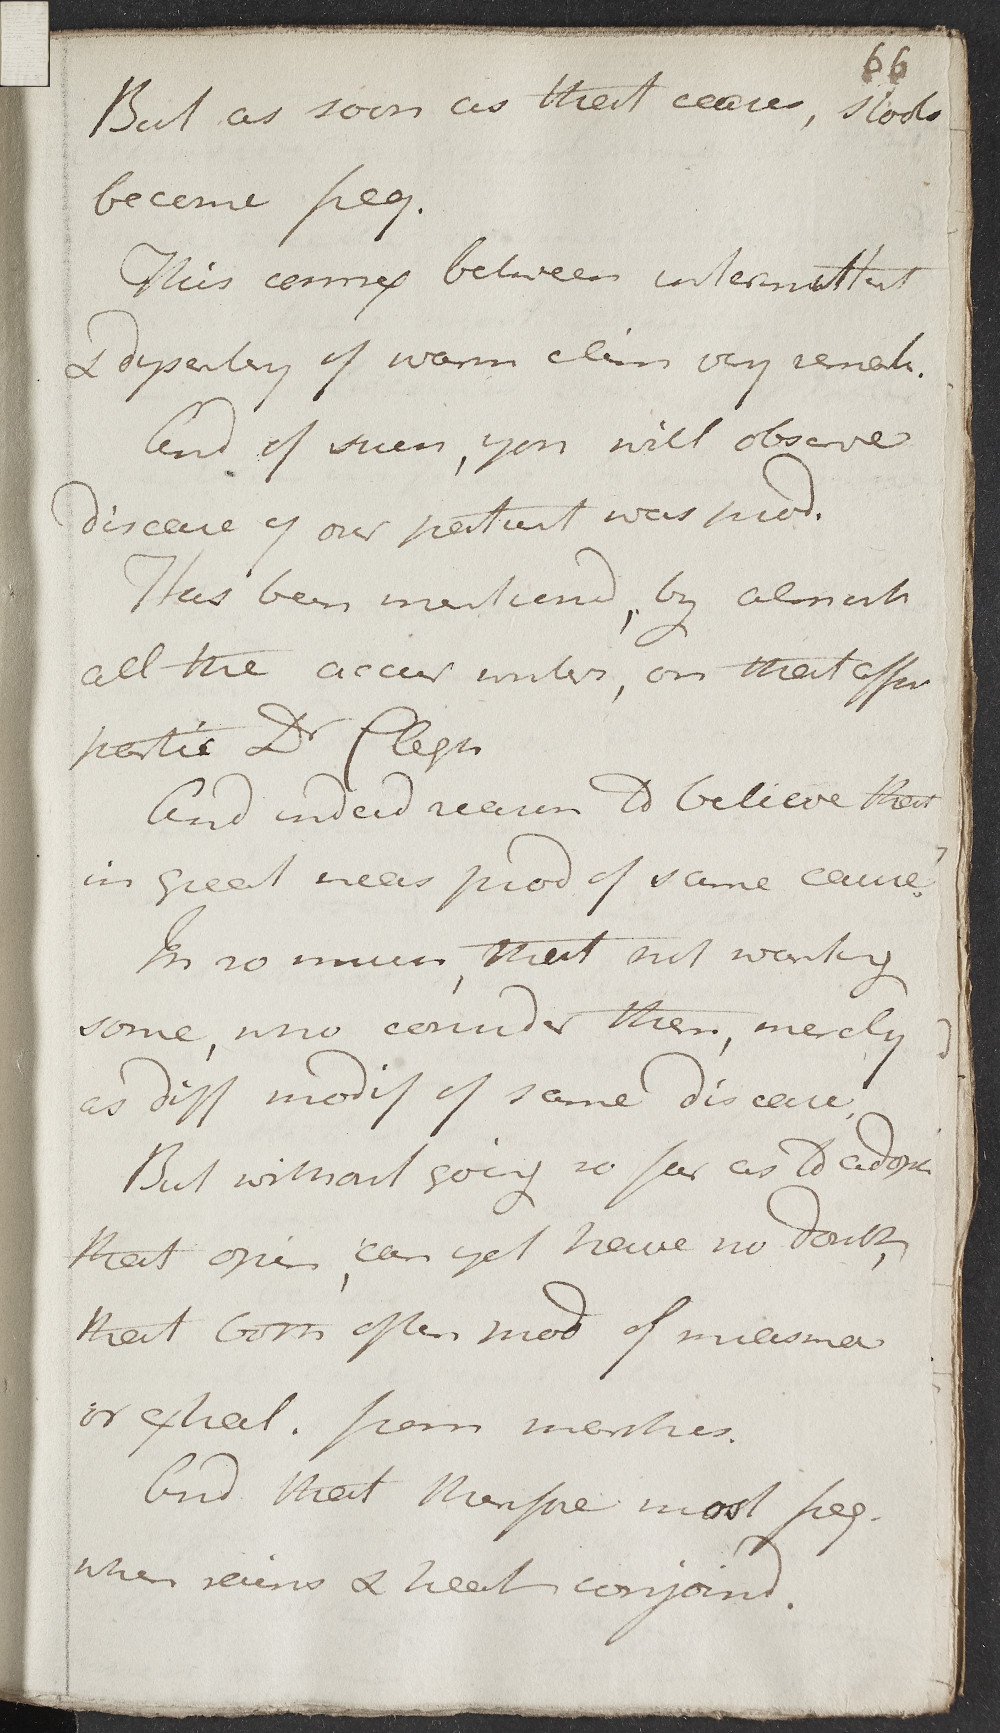 66
But as soon as that ceases, stools
become freq.
This connex between intermittent
& dysentery of warm clim very remark.
And of such, you will observe
disease of our patient was prod.
Has been mentiond, by almost
all the accur writers, on that affec
partic Dr Clegn
And indeed reason to believe that
in great meas prod of same cause.
In so much, that not wanting
some, who consider them, merely
as diff modif of same disease.
But without going so far as to adopt
that opin, can yet have no doubt,
that both often prod of miasma
or exhal. from marshes.
And that therefore most freq.
when rains & heat conjoind.